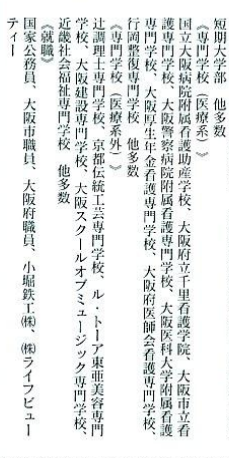 短期大学部　他多数
《専門学校（医療系）》
国立大阪病院附属看護助産学校、大阪府立千里看護学院、大阪市立看
護専門学校、大阪警察病院附属看護専門学校、大阪医科大学附属看護
専門学校、大阪厚生年金看護専門学校、大阪府医師会看護専門学校、
行岡整復専門学校　他多数
《専門学校（医療系外）》
辻調理士専門学校、京都伝統工芸専門学校、ル・トーア東亜美容専門
学校、大阪建設専門学校、大阪スクールオブミュージック専門学校、
近畿社会福祉専門学校　他多数
《就職》
国家公務員、大阪市職員、大阪府職員、小堀鉄工㈱、㈱ライフビュー
ティー